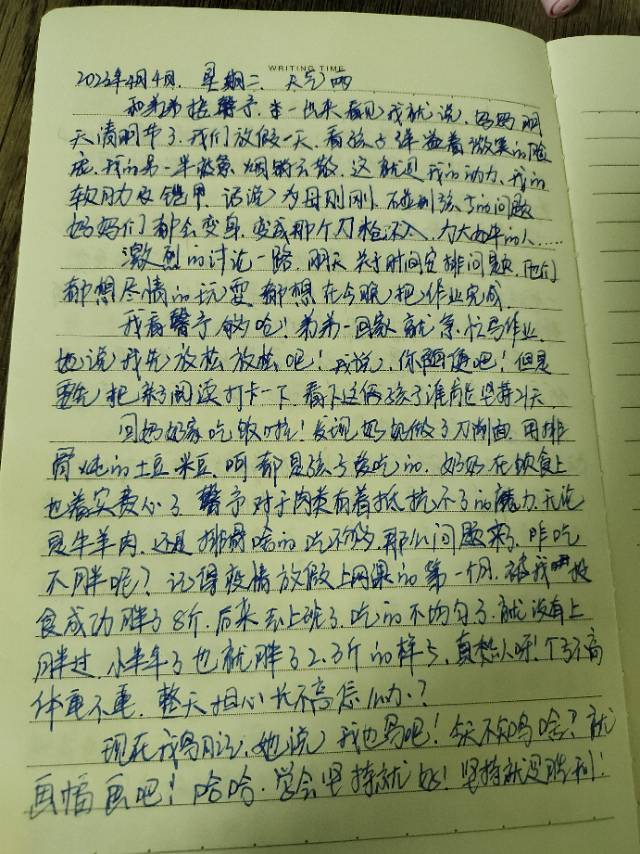 WRITING TIME
2023年4月4日. 星期二. 天气雨
和弟弟接馨予. 车一出来看见我就说. 妈妈明
天清明节了. 我们放假一天. 看孩子洋溢着微笑的脸
庞. 我的另一半疲惫烟销云散. 这就是我的动力. 我的
软肋及铠甲. 话说为母则刚. 碰到孩子的问题
妈妈们都会变身. 变成那个刀枪不入. 力大如牛的人.....
激烈的讨论一路. 明天关于时间安排问题. 他们
都想尽情的玩耍. 都想在今晚把作业完成.
我看馨予 哈! 弟弟一回家就急忙写作业.
她说我先放松放松吧! 我说. 你随便吧! 但是
要先把亲子阅读打卡一下. 看下这俩孩子谁能坚持21天
回奶奶家吃饭啦! 发现奶奶做了刀削面. 用排
骨炖的土豆 豆. 啊都是孩子爱吃的. 奶奶在饮食上
也着实费心了 馨予对于肉类有着抵抗不了的魔力. 无论
是牛羊肉. 还是排骨啥的吃不够. 那么问题来了. 咋吃
不胖呢? 记得疫情放假上网课的第一个月. 被我投
食成功胖了8斤. 后来去上班了. 吃的不均匀了. 就没有上
胖过. 小半年了也就胖了2.3斤的样子. 真愁人呀! 个子不高
体重不重. 整天担心长不高怎么办.?
现在我写日记. 她说我也写吧! 今天不知写啥? 就
画幅画吧! 哈哈. 学会坚持就好! 坚持就是胜利!